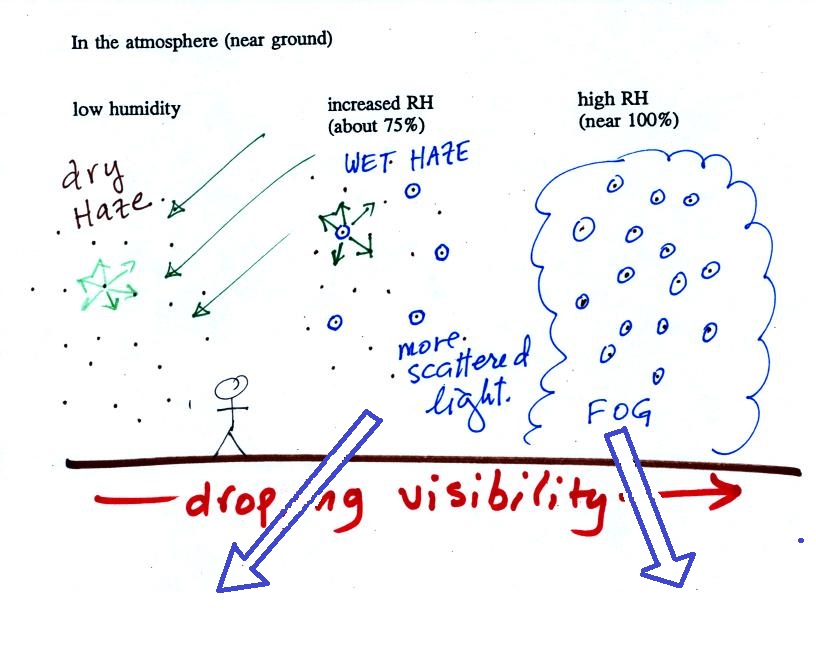 In the atmosphere (near ground)
low humidity
increased RH
(about 75%)
high RH
(near 100%)
dry
Haze
WET HAZE
more
scattered
light.
FOG
droping visibility